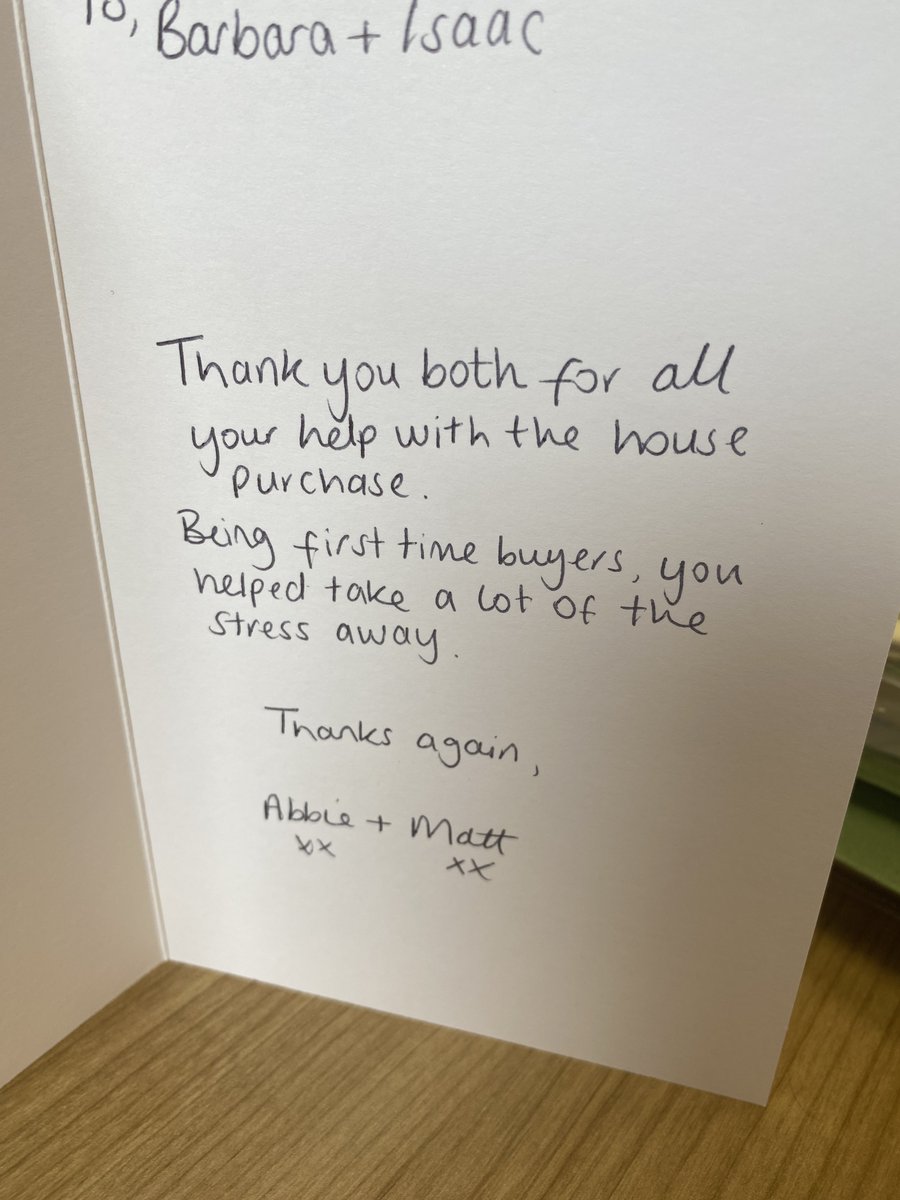 To, Barbara + Isaac
Thank you both for all
your help with the house
purchase.
Being first time buyers, you
helped take a lot of the
stress away.
Thanks again,
Abbie + Matt
xx xx